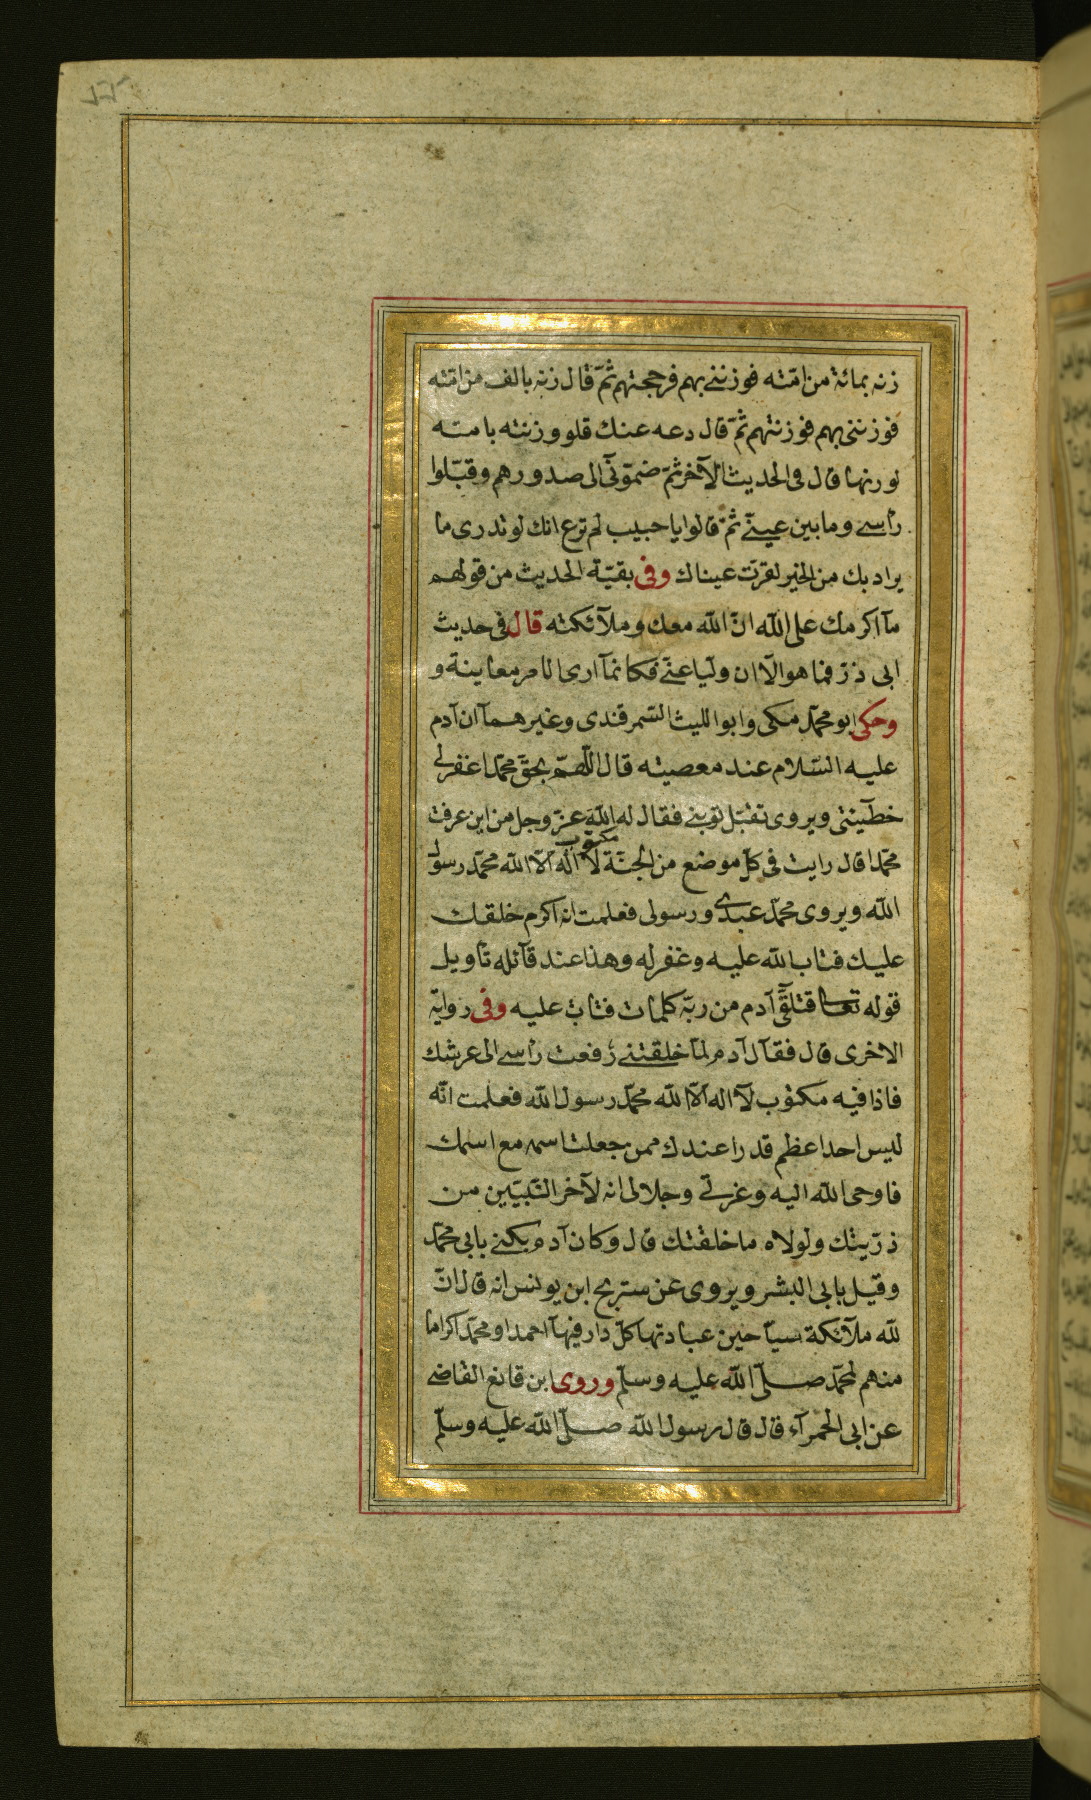 زنه بمائة من امّته فوزننى بهم فرجحتهم ثمّ قال زنه بالف من امّته
فوزننى بهم فوزنتهم ثمّ قال دعه عنك فلو وزنته بامته
لوزنها قال فى الحديث الآخر ثمّ ضمّونى الى صدورهم وقبّلوا
راسى وما بين عينىّ ثمّ قالوا يا حبيب لم ترع انك لو تدرى ما
يراد بك من الخير لقرّت عيناك وفى بقيّة الحديث من قولهم
مآ اكرمك على الله انّ الله معك وملآئكته قال فى حديث
ابى ذرّ فما هو الّا ان ولّيا عنّى فكانمآ ارى الامر معاينة و
وحكى ابو محمّد مكى وابو الليث السّمرقندى وغيرهمآ ان آدم
عليه السّلام عند معصيته قال اللّهمّ بحقّ محمّد اغفرلى
خطيئتى ويروى تقبّل توبتى فقال له الله عزّ وجل من اين عرفت
محمّدا قال رايت فى كلّ موضع من الجنّة مكتوب لآ اله الّا الله محمّد رسول
الله ويروى محمّد عبدى ورسولى فعلمت انه اكرم خلقك
عليك فتاب الله عليه وغفر له وهذا عند قآئله تاويل
قوله تعالى فتلقّىٓ آدم من ربّه كلمات فتاب عليه وفى رواية
الاخرى قال فقآل آدم لمّا خلقتنى رفعت راسى الى عرشك
فاذا فيه مكتوب لآ اله الّا الله محمّد رسول الله فعلمت انّه
ليس احد اعظم قدرا عندك ممن جعلت اسمه مع اسمك
فاوحى الله اليه وعزتى وجلالى انه لآخر النّبيّين من
ذرّيتك ولولاه ما خلقتك قال وكان آدم يكنى بابى محمّد
وقيل بابى البشر ويروى عن سريج ابن يونس انه قال انّ
لله ملآئكة سيّاحين عبادتها كلّ دار فيهآ احمد او محمّد اكراما
منهم لمحمّد صلّى الله عليه وسلّم وروى ابن قانع القاضى
عن ابى الحمرآء قال قال رسول الله صلّى الله عليه وسلّم